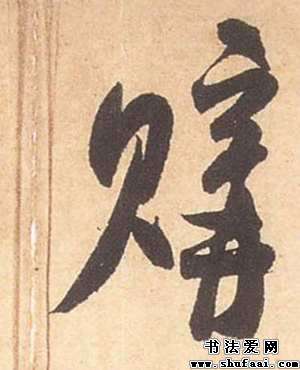 購
书法爱网
www.shufaai.com